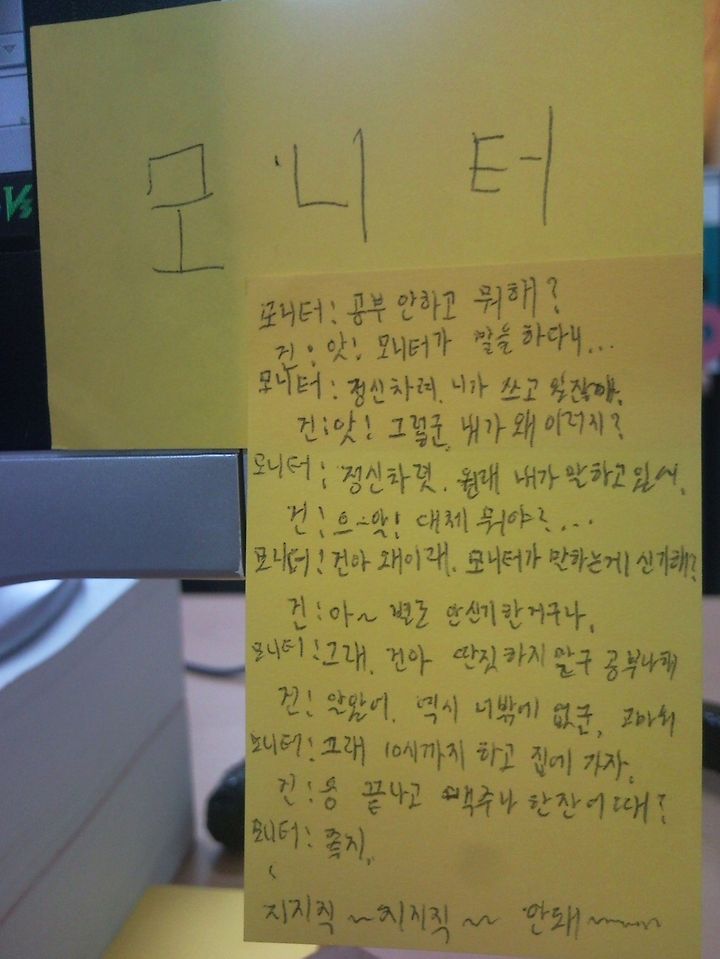 모니터
V3
모니터: 공부 안하고 뭐해?
건: 앗! 모니터가 말을 하다니...
모니터: 정신차려. 니가 쓰고 있잖아.
건: 앗! 그렇군. 내가 왜 이러지?
모니터: 정신차렷. 원래 내가 말하고 있어.
건: 으~악! 대체 뭐야?...
모니터: 건아 왜이래. 모니터가 말하는게 신기해?
건: 아~ 별로 안신기한거구나.
모니터: 그래. 건아 딴짓하지 말구 공부나해
건: 알았어. 역시 너밖에 없군. 고마워
모니터: 그래 10시까지 하고 집에 가자.
건: 응 끝나고 맥주나 한잔 어때?
모니터: 좋지.
지지직~지지직~~ 안돼~~~~